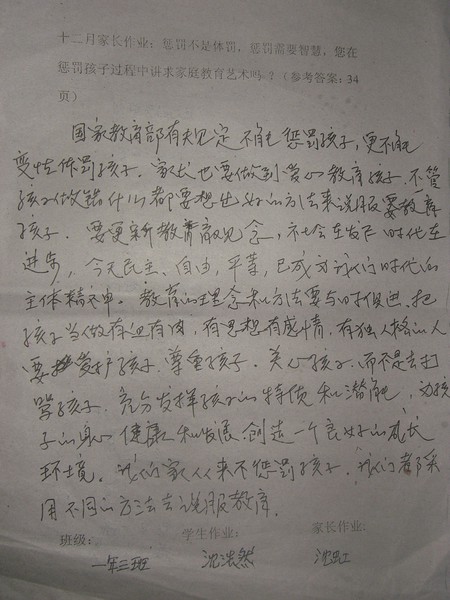 十二月家长作业：惩罚不是体罚，惩罚需要智慧，您在
惩罚孩子过程中讲求家庭教育艺术吗？（参考答案：34
页）
国家教育部有规定不能惩罚孩子，更不能
变性体罚孩子．家长也要做到爱心教育孩子．不管
孩子做错什么都要想出好的方法来说服要教育
孩子．要更新教育观念，社会在发展时代在
进步，今天民主、自由，平等，已成为我们时代的
主体精神．教育的理念和方法要与时俱进．把
孩子当做有血有肉，有思想有感情，有独人格的人
要爱护孩子．尊重孩子．关心孩子．而不是去打
骂孩子．充分发挥孩子的特质和潜能，为孩
子的身心健康和发展创造一个良好的成长
环境．我们家从来不惩罚孩子．我们都采
用不同的方法去说服教育．
班级： 学生作业： 家长作业：
一年三班 沈浩然 沈虹